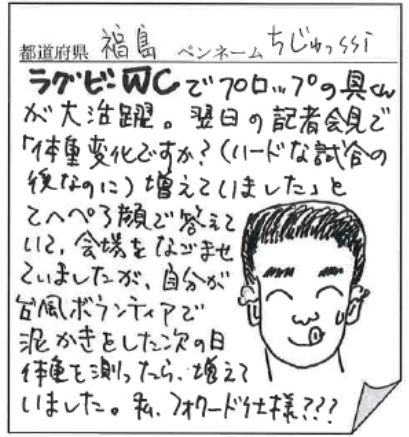 都道府県 福島 ペンネーム ちじゅっssi
ラグビーWCでプロップの具くん
が大活躍。翌日の記者会見で
「体重変化ですか？(ハードな試合の
後なのに)増えていました」と
てへぺろ顔で答えて
いて、会場をなごませ
ていましたが、自分が
台風ボランティアで
泥かきをした次の日
体重を測ったら、増えて
いました。私、フォワード仕様???